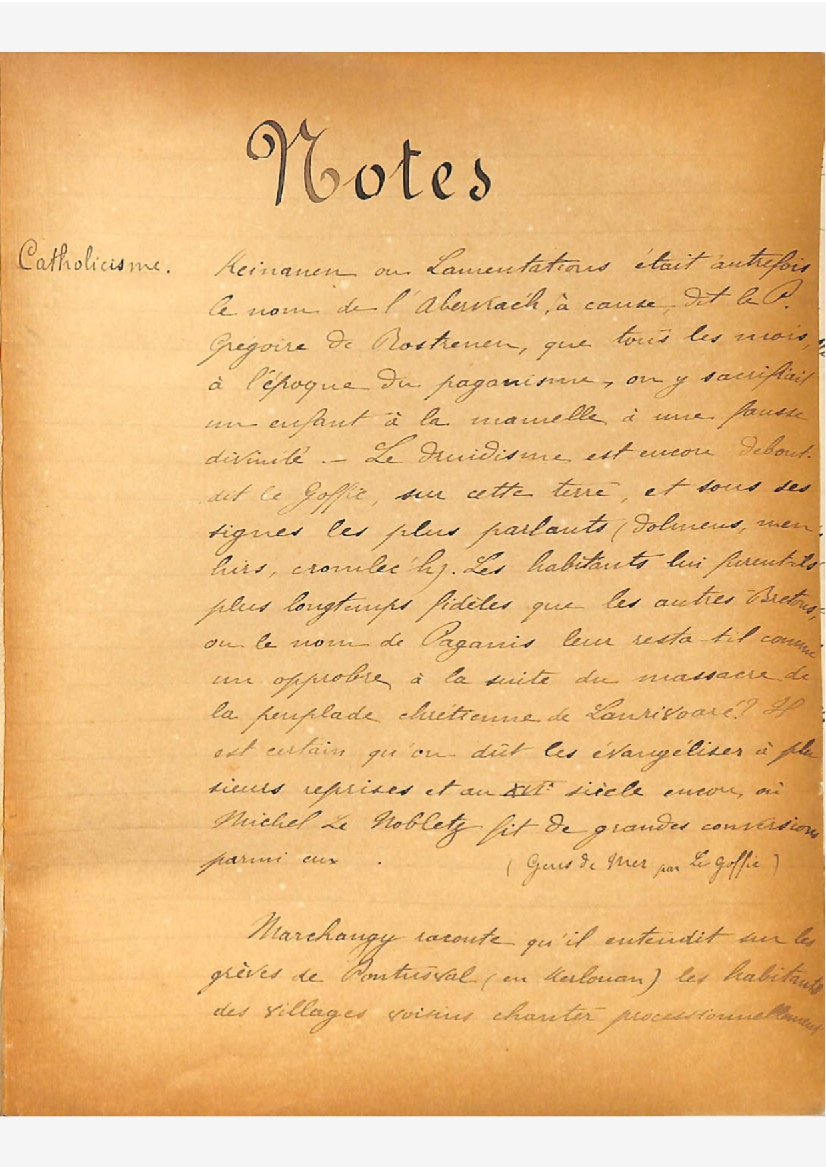 Notes
Catholicisme.
Keinanen ou Lamentations était autrefois
le nom de l'Aberwrac'h, à cause, dit le P.
Grégoire de Rostrenen, que tous les mois,
à l'époque du paganisme, on y sacrifiait
un enfant à la mamelle à une fausse
divinité. — Le druidisme est encore debout
dit le Goffic, sur cette terre, et sous ses
signes les plus parlants (dolmens, men-
hirs, cromlec'h). Les habitants lui furent-ils
plus longtemps fidèles que les autres Bretons,
ou le nom de Paganis leur resta-t-il comme
un opprobre à la suite du massacre de
la peuplade chrétienne de Lanrivoaré? Il
est certain qu'on dût les évangéliser à plu
sieurs reprises et au siècle encore, où
Michel Le Nobletz fit de grandes conversions
parmi eux.
(Gens de Mer par Le Goffic)
Marchangy raconte qu'il entendit sur les
grèves de Pontusval (en Kerlouan) les habitants
des villages voisins chanter processionnellement